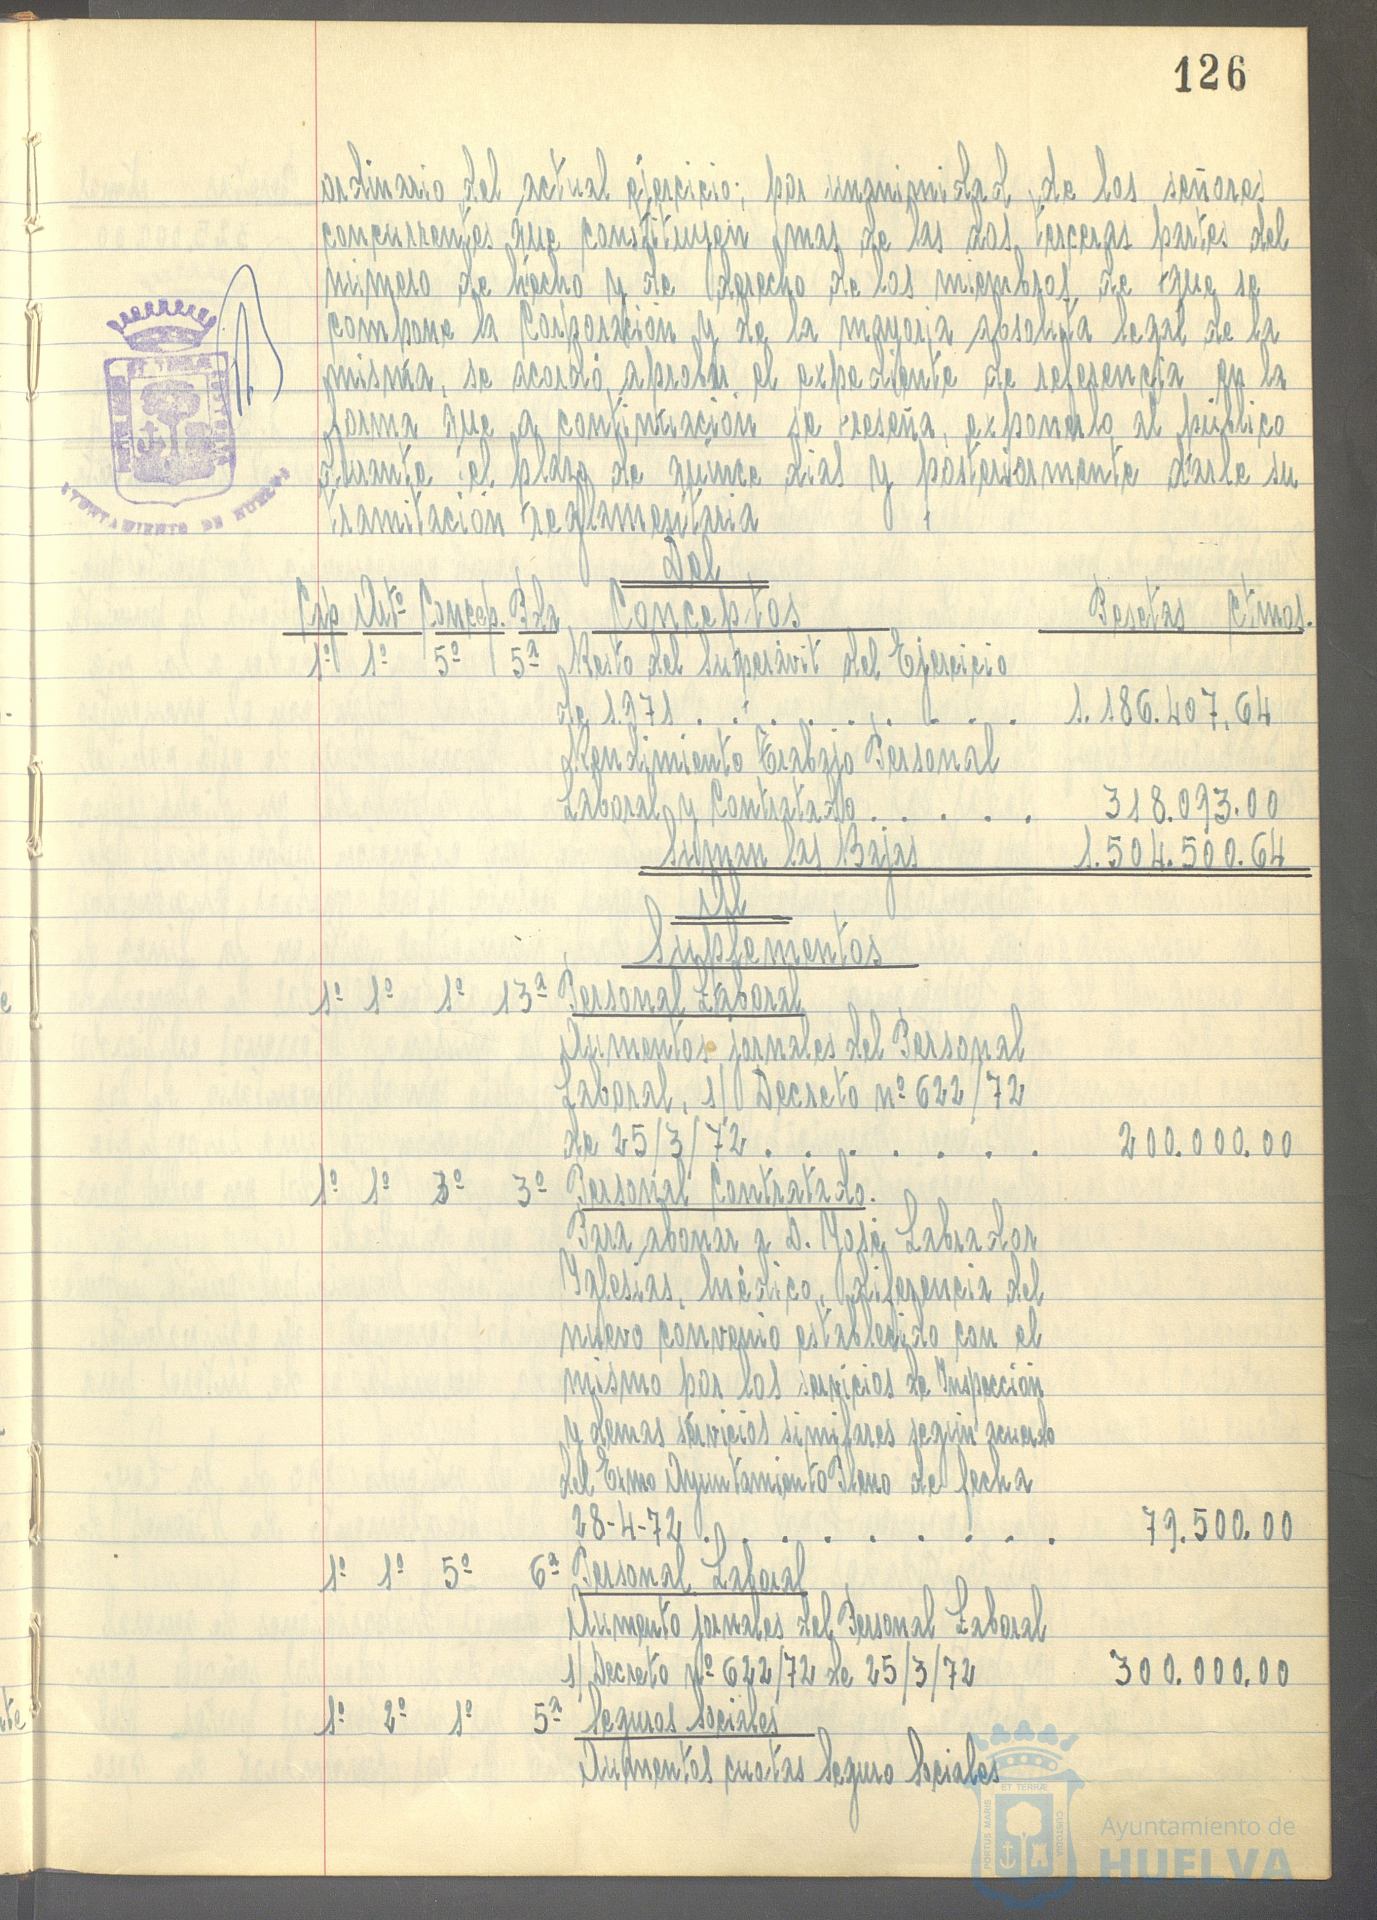 126
ordinario del actual ejercicio; por unanimidad de los señores
concurrentes que constituyen mas de las dos terceras partes del
número de hecho y de derecho de los miembros de que se
compone la Corporación y de la mayoría absoluta legal de la
misma, se acordó aprobar el expediente de referencia en la
forma que a continuación se reseña, exponerlo al público
durante el plazo de quince dias y posteriormente darle su
tramitación reglamentaria
AYUNTAMIENTO DE HUELVA
Del
Cap Artº Concep. Pda Conceptos Pesetas Ctmos.
1º 1º 5º 5ª Resto del Superávit del Ejercicio
de 1.971 . . . . . . . . . 1.186.407,64
Rendimiento Trabajo Personal
Laboral y Contratado . . . . . 318.093.00
Suman las Bajas 1.504.500.64
Al
Suplementos
1º 1º 1º 13ª Personal Laboral
Aumentos jornales del Personal
Laboral, s/ Decreto nº 622/72
de 25/3/72 . . . . . . . 200.000.00
1º 1º 3º 3º Personal Contratado.
Para abonar a D. José Labrador
Yglesias, Médico, diferencia del
nuevo convenio establecido con el
mismo por los servicios de Inspección
y demas servicios similares según acuerdo
del Exmo Ayuntamiento Pleno de fecha
28-4-72 . . . . . . . . . 79.500.00
1º 1º 5º 6ª Personal Laboral
Aumento jornales del Personal Laboral
s/ Decreto nº 622/72 de 25/3/72 300.000.00
1º 2º 1º 5ª Seguros Sociales
Aumentos cuotas Seguro Sociales
PORTUS MARIS ET TERRÆ CUSTODIA
Ayuntamiento de
HUELVA